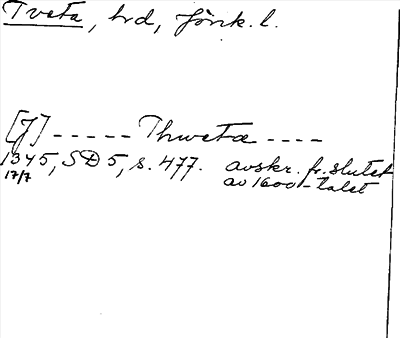 Tveta, hrd, Jönk. l.
[J] ----- Thweta ----
1345, SD 5, s. 477. avskr. fr. slutet
17/7 av 1600-talet